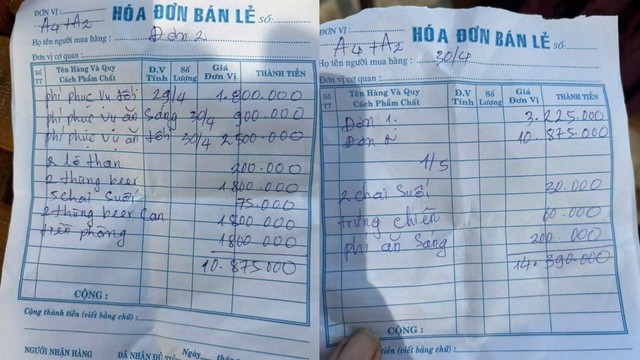 ĐƠN VỊ: A4+A2 HÓA ĐƠN BÁN LẺ Số:
Họ tên người mua hàng: Đơn 2
Đơn vị cơ quan:
Số TT Tên Hàng Và Quy Cách Phẩm Chất Đ.V Tính Số Lượng Giá Đơn Vị THÀNH TIỀN
phí phục vụ tối 29/4 1.800.000
phí phục vụ ăn sáng 30/4 900.000
phí phục vụ ăn tối 30/4 2500.000
2 lò than 200.000
2 thùng beer 1800.000
5 chai suối 75.000
2 thùng beer lan 1800.000
tiền phòng 1800.000
10.875000
CỘNG:
Cộng thành tiền (viết bằng chữ):
Ngày tháng
NGƯỜI NHẬN HÀNG ĐÃ NHẬN ĐỦ
ĐƠN VỊ: A4+A2 HÓA ĐƠN BÁN LẺ Số:
Họ tên người mua hàng: 30/4
Đơn vị cơ quan:
Số TT Tên Hàng Và Quy Cách Phẩm Chất Đ.V Tính Số Lượng Giá Đơn Vị THÀNH TIỀN
Đơn 1. 3.225.000
Đơn 2 10.875.000
1/5
2 chai suối 30.000
trứng chiên 60.000
phí ăn sáng 200.000
14.390.000
CỘNG:
Cộng thành tiền (viết bằng chữ):